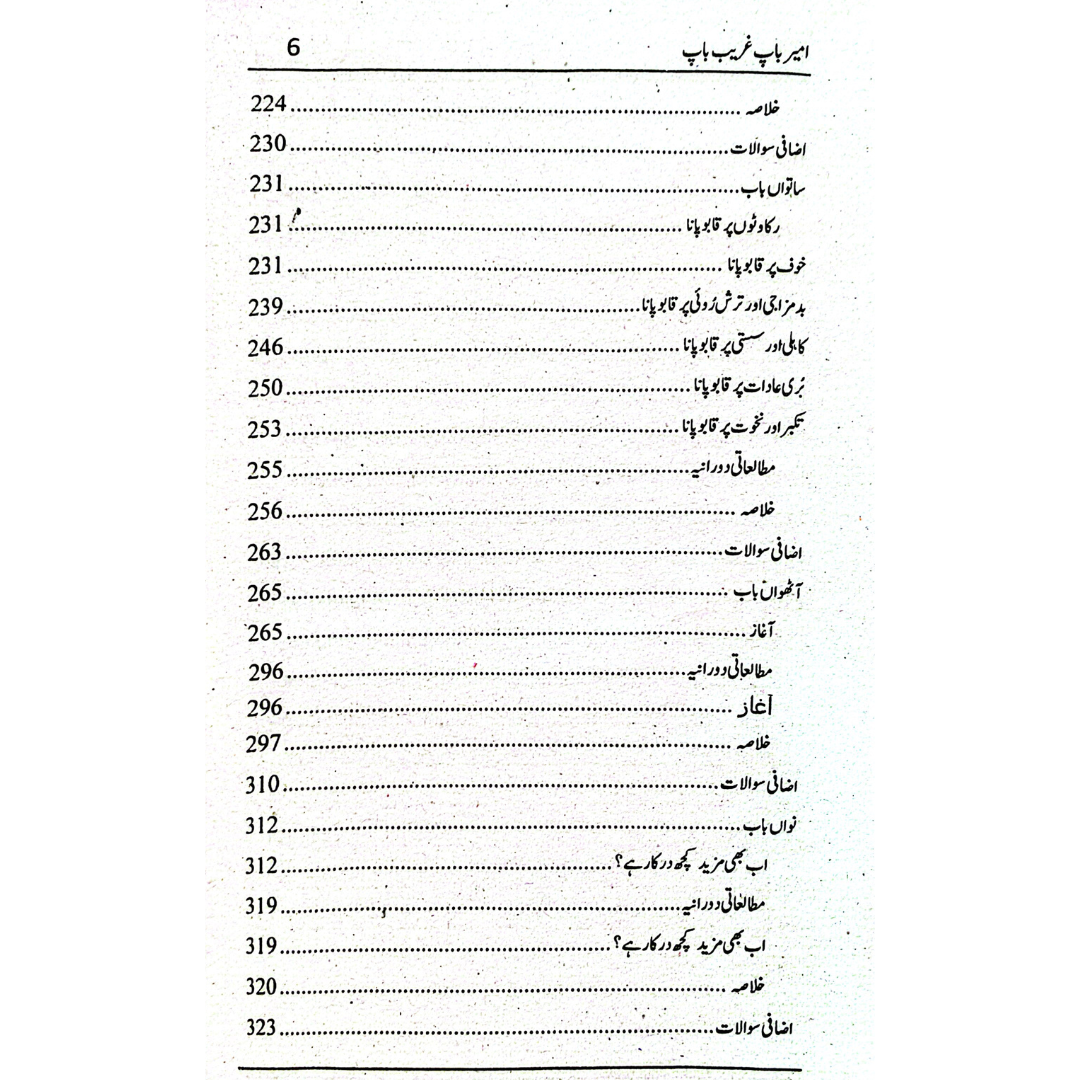 امیر باپ غریب باپ 6
خلاصہ ........ 224
اضافی سوالات ........ 230
ساتواں باب ........ 231
رکاوٹوں پر قابو پانا ........ 231
خوف پر قابو پانا ........ 231
بدمزاجی اور ترش رُوئی پر قابو پانا ........ 239
کاہلی اور سستی پر قابو پانا ........ 246
بُری عادات پر قابو پانا ........ 250
تکبر اور نخوت پر قابو پانا ........ 253
مطالعاتی دورانیہ ........ 255
خلاصہ ........ 256
اضافی سوالات ........ 263
آٹھواں باب ........ 265
آغاز ........ 265
مطالعاتی دورانیہ ........ 296
آغاز ........ 296
خلاصہ ........ 297
اضافی سوالات ........ 310
نواں باب ........ 312
اب بھی مزید کچھ درکار ہے؟ ........ 312
مطالعاتی دورانیہ ........ 319
اب بھی مزید کچھ درکار ہے؟ ........ 319
خلاصہ ........ 320
اضافی سوالات ........ 323